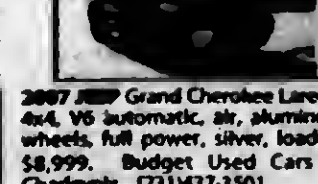 2007 Jeep Grand Cherokee Lare
4x4, V6 automatic, air, alumin
wheels, full power, silver, load
$8,999. Budget Used Cars